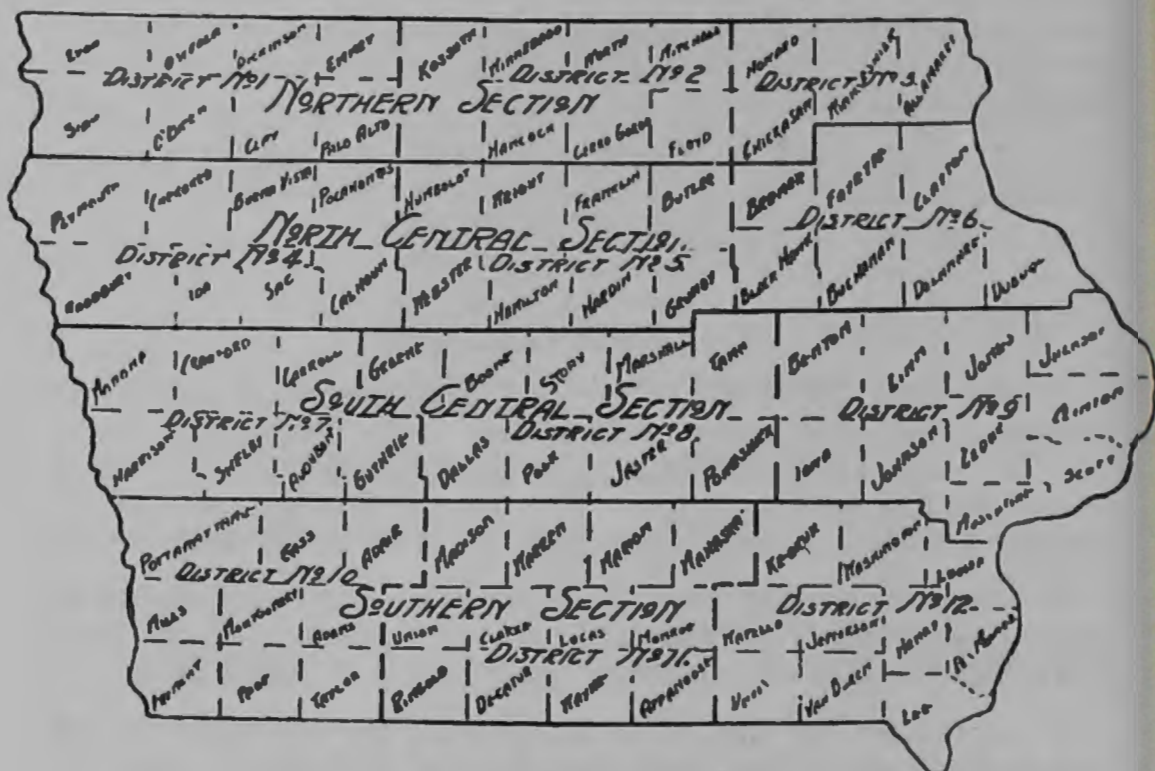 LYON OSCEOLA DICKINSON EMMET KOSSUTH WINNEBAGO WORTH MITCHELL HOWARD WINNESHIEK ALLAMAKEE
DISTRICT №1 DISTRICT №2 DISTRICT №3
NORTHERN SECTION
SIOUX O'BRIEN CLAY PALO ALTO HANCOCK CERRO GORDO FLOYD CHICKASAW
PLYMOUTH CHEROKEE BUENA VISTA POCAHONTAS HUMBOLDT WRIGHT FRANKLIN BUTLER BREMER FAYETTE CLAYTON
NORTH CENTRAL SECTION DISTRICT №6
DISTRICT №4 DISTRICT №5
WOODBURY IDA SAC CALHOUN WEBSTER HAMILTON HARDIN GRUNDY BLACK HAWK BUCHANAN DELAWARE DUBUQUE
MONONA CRAWFORD CARROLL GREENE BOONE STORY MARSHALL TAMA BENTON LINN JONES JACKSON
SOUTH CENTRAL SECTION DISTRICT №9 CLINTON
DISTRICT №7 DISTRICT №8
HARRISON SHELBY AUDUBON GUTHRIE DALLAS POLK JASPER POWESHIEK IOWA JOHNSON CEDAR SCOTT
MUSCATINE
POTTAWATTAMIE CASS ADAIR MADISON WARREN MARION MAHASKA KEOKUK WASHINGTON LOUISA
DISTRICT №10
SOUTHERN SECTION DISTRICT №12
MILLS MONTGOMERY ADAMS UNION CLARKE LUCAS MONROE WAPELLO JEFFERSON HENRY DES MOINES
DISTRICT №11
FREMONT PAGE TAYLOR RINGGOLD DECATUR WAYNE APPANOOSE DAVIS VAN BUREN LEE